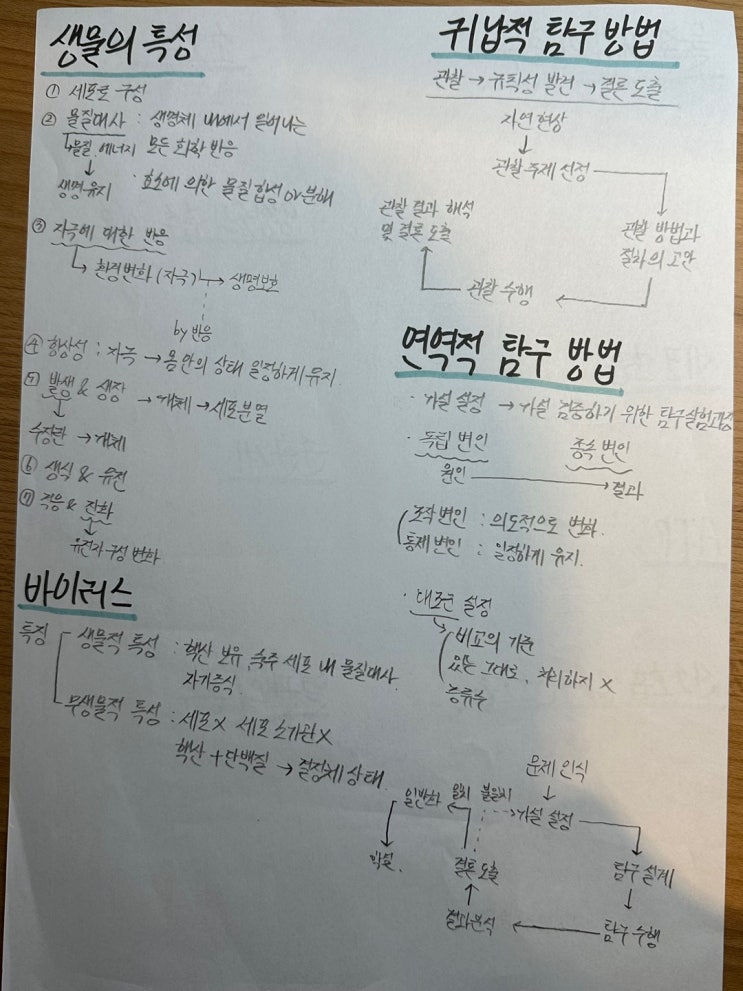 생물의 특성
① 세포로 구성
② 물질대사 : 생명체 내에서 일어나는
물질, 에너지 모든 화학 반응
↓
생명 유지 · 효소에 의한 물질 합성 or 분해
③ 자극에 대한 반응
↳ 환경변화 (자극) → 생명보호
by 반응
④ 항상성 : 자극 → 몸 안의 상태 일정하게 유지.
⑤ 발생 & 생장 → 개체 → 세포분열
↓
수정란 → 개체
⑥ 생식 & 유전
⑦ 적응 & 진화
↓
유전자 구성 변화
바이러스
특징
생물적 특성 : 핵산 보유, 숙주 세포 내 물질대사.
자기증식
무생물적 특성 : 세포X 세포 소기관X
핵산 + 단백질 → 결정체 상태.
귀납적 탐구 방법
관찰 → 규칙성 발견 → 결론 도출
자연 현상
↓
관찰 주제 선정
관찰 방법과
절차의 고안
관찰 수행
관찰 결과 해석
및 결론 도출
연역적 탐구 방법
· 가설 설정 → 가설 검증하기 위한 탐구실험과정
· 독립 변인 종속 변인
원인 → 결과
조작 변인 : 의도적으로 변화.
통제 변인 : 일정하게 유지.
· 대조군 설정
비교의 기준
있는 그대로, 처리하지 X
증류수
문제 인식
↓
가설 설정
탐구 설계
↓
탐구 수행
결과분석
↑
결론 도출
일치 불일치
일반화
학설.